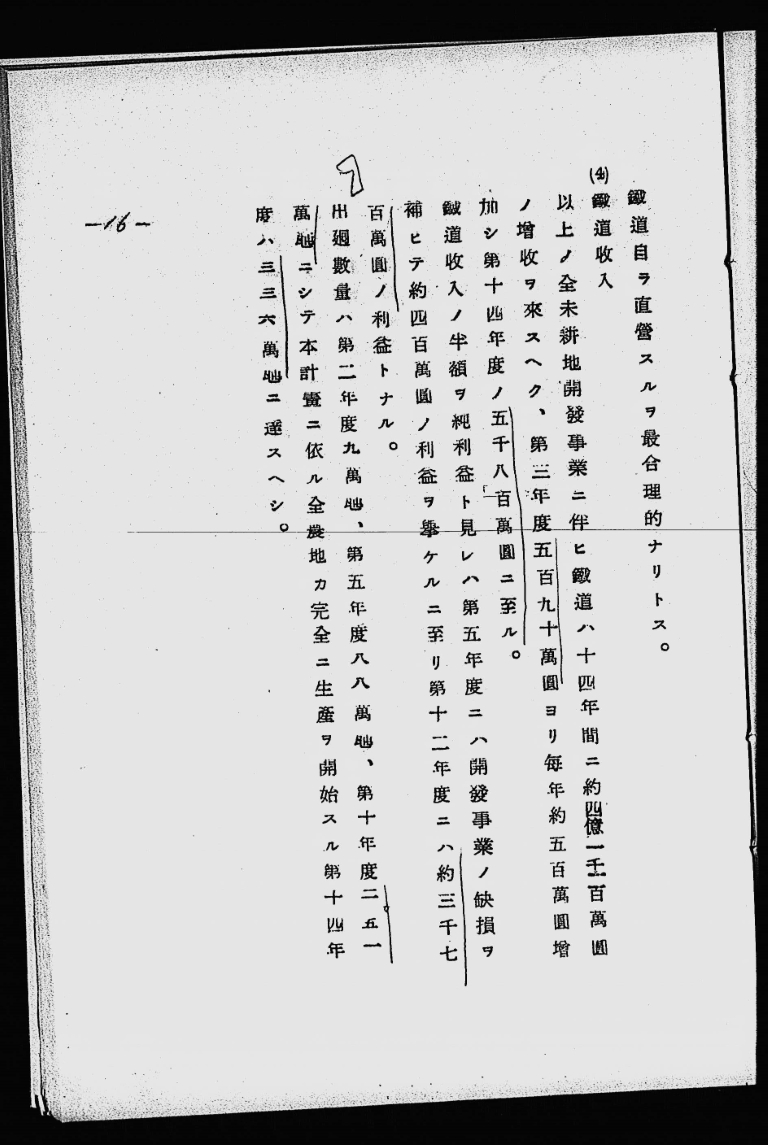 鐵道自ラ直營スルヲ最合理的ナリトス。
(4)鐵道收入
以上ノ全未耕地開發事業ニ伴ヒ鐵道ハ十四年間ニ約四億一千二百萬圓
ノ增收ヲ來スヘク、第三年度五百九十萬圓ヨリ每年約五百萬圓增
加シ第十四年度ノ五千八百萬圓ニ至ル。
鐵道收入ノ半額ヲ純利益ト見レハ第五年度ニハ開發事業ノ缺損ヲ
補ヒテ約四百萬圓ノ利益ヲ擧ケルニ至リ第十二年度ニハ約三千七
百萬圓ノ利益トナル。
出廻數量ハ第二年度九萬瓲、第五年度八八萬瓲、第十年度二五一
萬瓲ニシテ本計畫ニ依ル全農地カ完全ニ生產ヲ開始スル第十四年
度ハ三三六萬瓲ニ達スヘシ。
7
—16—